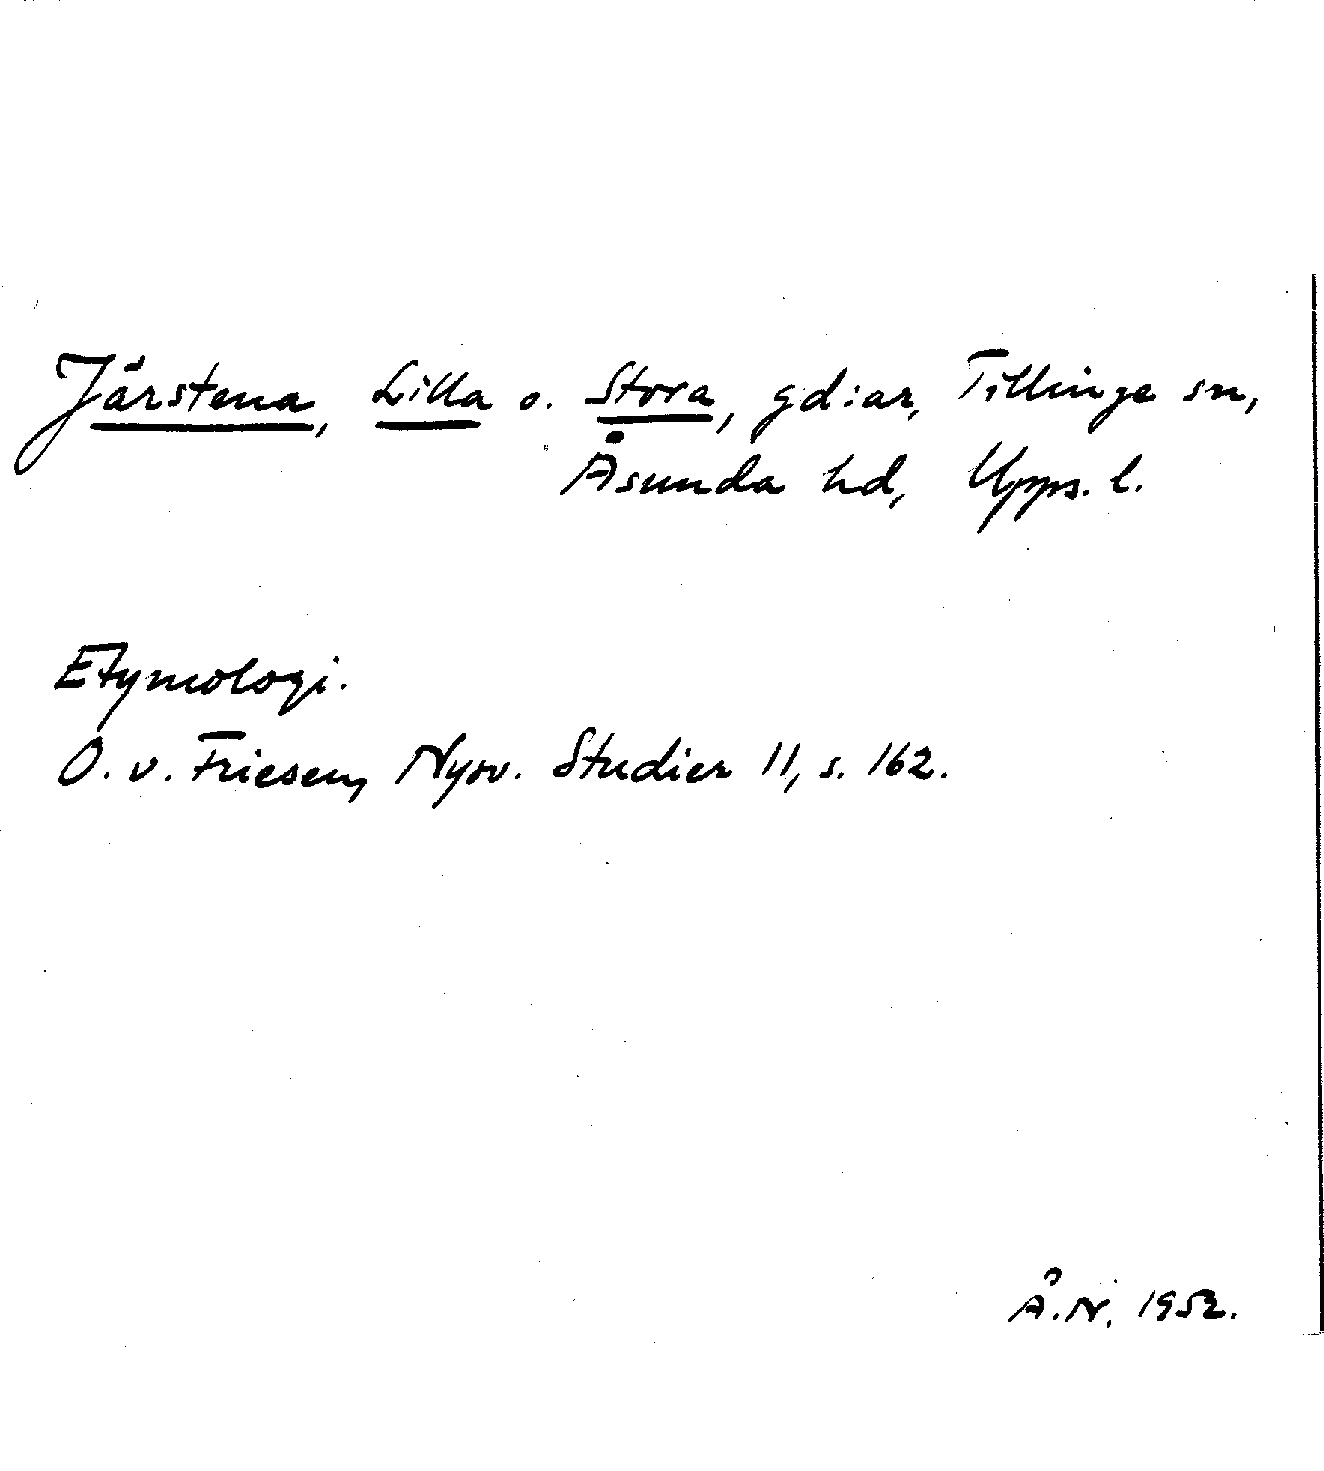 Järstena, Lilla o. Stora, gd:ar, Tillinge sn,
Åsunda hd, Upps. l.
Etymologi.
O. v. Friesen, Nysv. Studier 11, s. 162.
Å. N. 1952.